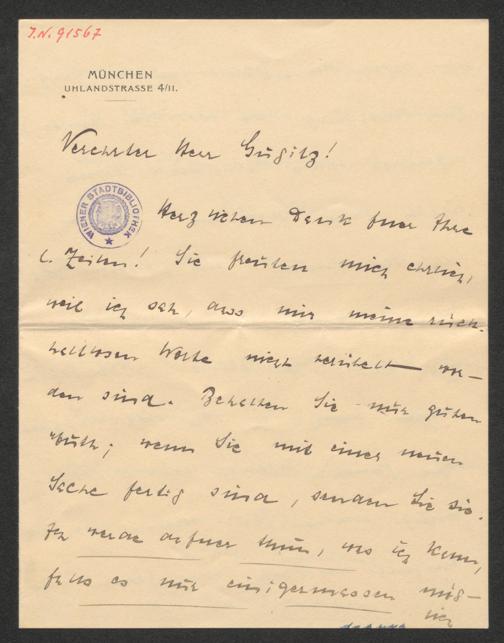 J.N. 91567
MÜNCHEN
UHLANDSTRASSE 4/II.
Verehrter Herr Gugitz!
WIENER STADTBIBLIOTHEK
Herzlichen Dank fuer Ihre
l. Zeilen! Sie freuten mich ehrlich,
weil ich sah, dass mir meine rück-
haltlosen Worte nicht verübelt wor-
den sind. Behalten Sie nur guten
Muth; wenn Sie mit einer neuen
Sache fertig sind, senden Sie sie.
Ich werde dafuer thun, was ich kann,
falls es mir einigermassen mög-
lich